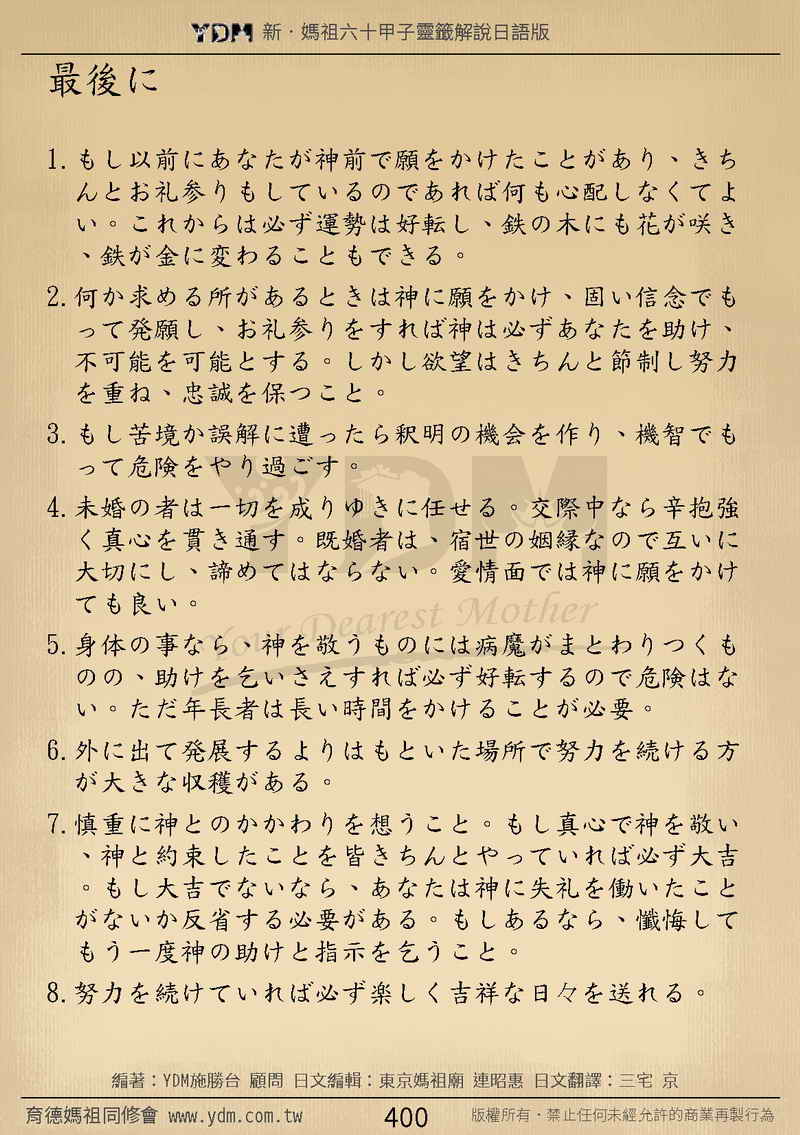 YDM 新・媽祖六十甲子靈籤解說日語版
最後に
1. もし以前にあなたが神前で願をかけたことがあり、きち
んとお礼参りもしているのであれば何も心配しなくてよ
い。これからは必ず運勢は好転し、鉄の木にも花が咲き
、鉄が金に変わることもできる。
2. 何か求める所があるときは神に願をかけ、固い信念でも
って発願し、お礼参りをすれば神は必ずあなたを助け、
不可能を可能とする。しかし欲望はきちんと節制し努力
を重ね、忠誠を保つこと。
3. もし苦境か誤解に遭ったら釈明の機会を作り、機智でも
って危険をやり過ごす。
4. 未婚の者は一切を成りゆきに任せる。交際中なら辛抱強
く真心を貫き通す。既婚者は、宿世の姻縁なので互いに
大切にし、諦めてはならない。愛情面では神に願をかけ
ても良い。
5. 身体の事なら、神を敬うものには病魔がまとわりつくも
のの、助けを乞いさえすれば必ず好転するので危険はな
い。ただ年長者は長い時間をかけることが必要。
6. 外に出て発展するよりはもといた場所で努力を続ける方
が大きな収穫がある。
7. 慎重に神とのかかわりを想うこと。もし真心で神を敬い
、神と約束したことを皆きちんとやっていれば必ず大吉
。もし大吉でないなら、あなたは神に失礼を働いたこと
がないか反省する必要がある。もしあるなら、懺悔して
もう一度神の助けと指示を乞うこと。
8. 努力を続けていれば必ず楽しく吉祥な日々を送れる。
YDM
Your Dearest Mother
編著：YDM施勝台 顧問 日文編輯：東京媽祖廟 連昭惠 日文翻譯：三宅 京
育德媽祖同修會 www.ydm.com.tw 400 版權所有・禁止任何未經允許的商業再製行為